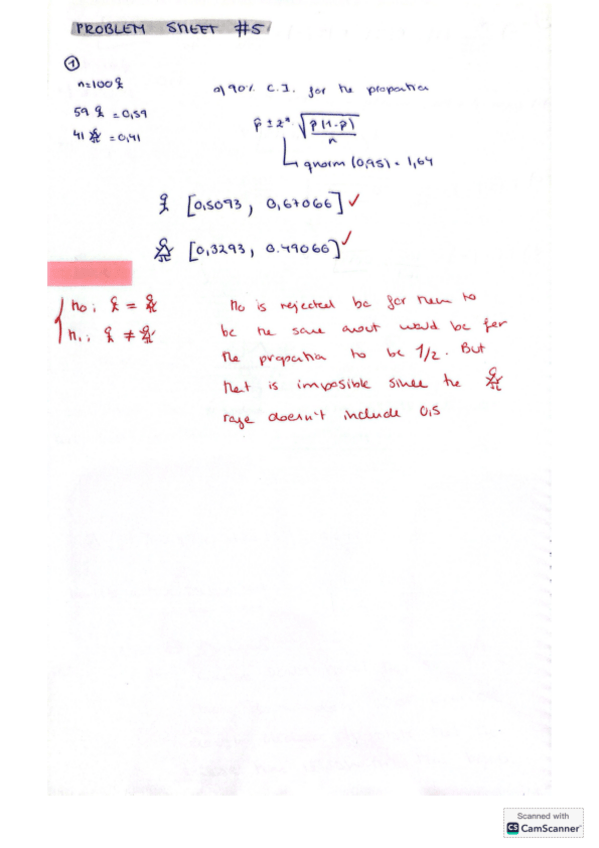 PROBLEM SHEET #5
①
n=100
a) 90% C.I. for the proportion
59 = 0,59
41 = 0,41
p̂ ± z* √(p̂(1-p̂)/n)
qnorm (0,95) = 1,64
[0,5093, 0,67066] ✓
[0,3293, 0.49066] ✓
H0: =
H1: ≠
H0 is rejected bc for them to
be the same amount would be for
the proportion to be 1/2. But
that is imposible since the
rage doesn't include 0,5
Scanned with
CS CamScanner